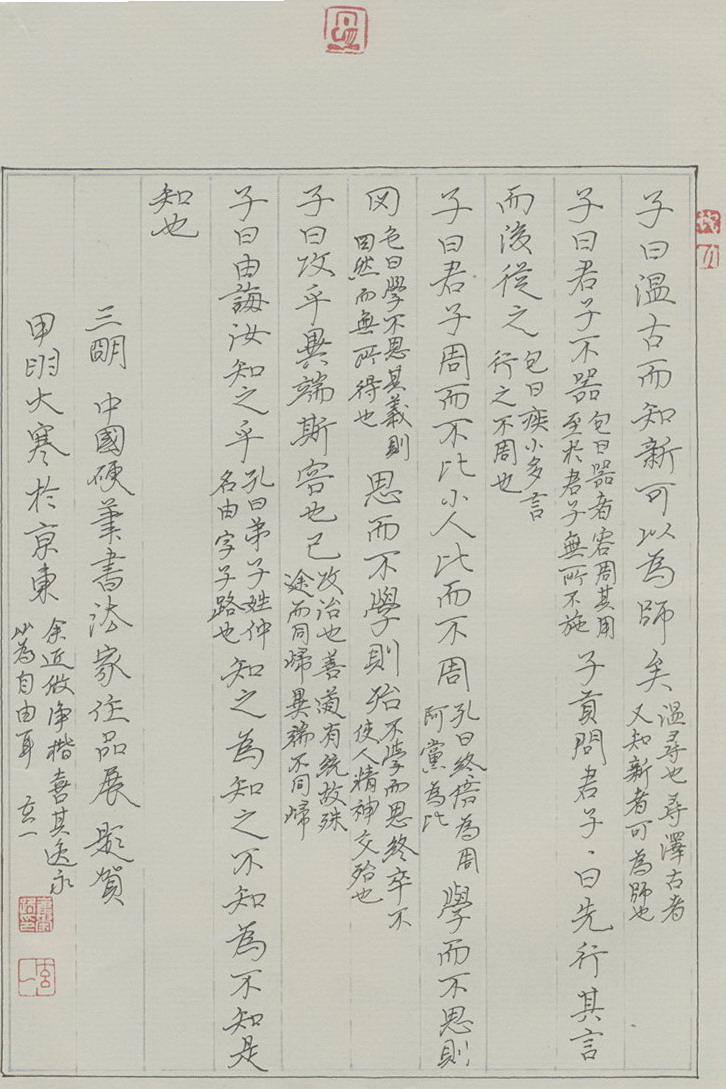 子曰溫古而知新可以為師矣溫尋也尋澤古者又知新者可為師也
子曰君子不器包曰器者容周其用至於君子無所不施子貢問君子、曰先行其言
而後從之包曰疾小多言行之不周也
子曰君子周而不比小人比而不周孔曰終倍為周阿黨為比學而不思則
罔包曰學不思其義則罔然而無所得也思而不學則殆不學而思終卒不使人精神交殆也
子曰攻乎異端斯害也已攻治也善道有統故殊途而同歸異端不同歸
子曰由誨汝知之乎孔曰弟子姓仲名由字子路也知之為知之不知為不知是
知也
三明 中國硬筆書法家作品展題賀
甲明大寒於京東余近做淨楷喜其以為自由耳 玄一